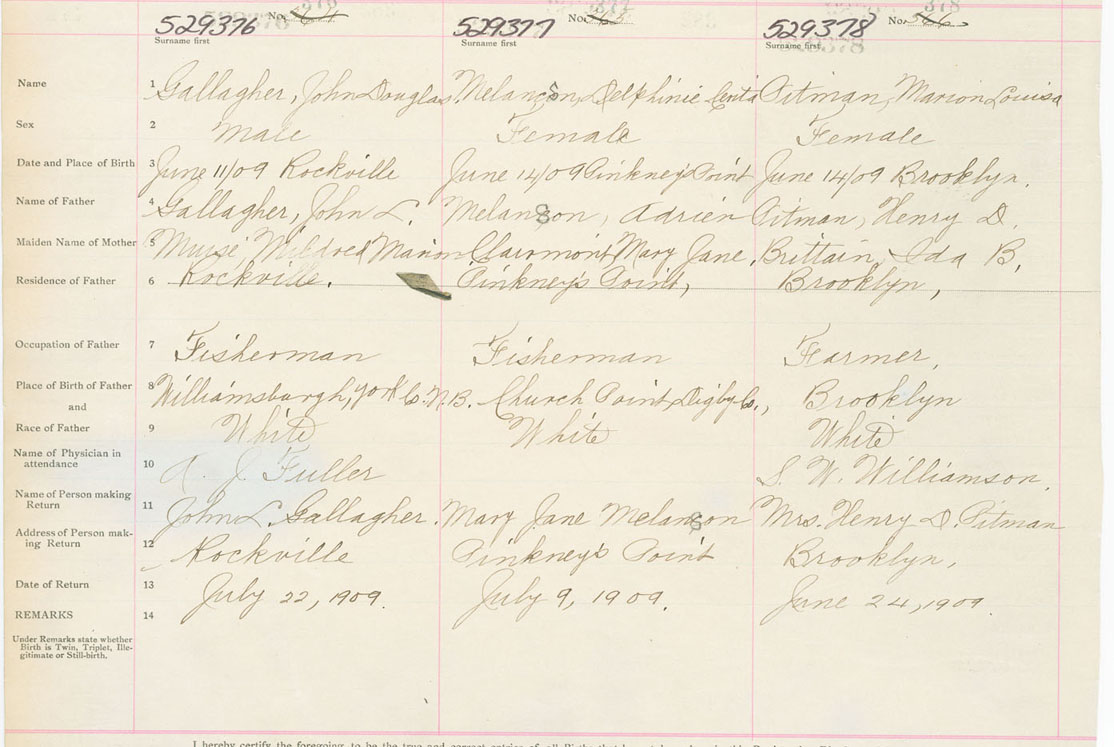 529376 No. 529377 No. 529378 No.
Surname first Surname first Surname first.
Name 1 Gallagher, John Douglas. Melanson, Delphinie Pitman, Marion Louisa
Sex 2 Male Female Female
Date and Place of Birth 3 June 11/09 Rockville June 14/09 Pinkney's Point June 14/09 Brooklyn.
Name of Father 4 Gallagher, John L. Melanson, Adrien Pitman, Henry D.
Maiden Name of Mother 5 Muise, Mildred Marion Clairmont, Mary Jane, Brittain, Ida B,
Residence of Father 6 Rockville. Pinkney's Point, Brooklyn,
Occupation of Father 7 Fisherman Fisherman Farmer,
Place of Birth of Father 8 Williamsburgh, York Co. N.B. Church Point, Digby Co., Brooklyn
and
Race of Father 9 White White White
Name of Physician in
attendance 10 A. J. Fuller S. W. Williamson.
Name of Person making
Return 11 John L. Gallagher. Mary Jane Melanson Mrs. Henry D. Pitman
Address of Person mak-
ing Return 12 Rockville Pinkney's Point Brooklyn,
Date of Return 13 July 22, 1909. July 9, 1909. June 24, 1909.
REMARKS 14
Under Remarks state whether
Birth is Twin, Triplet, Ille-
gitimate or Still-birth.
I hereby certify the foregoing to be the true and correct entries of all Births that